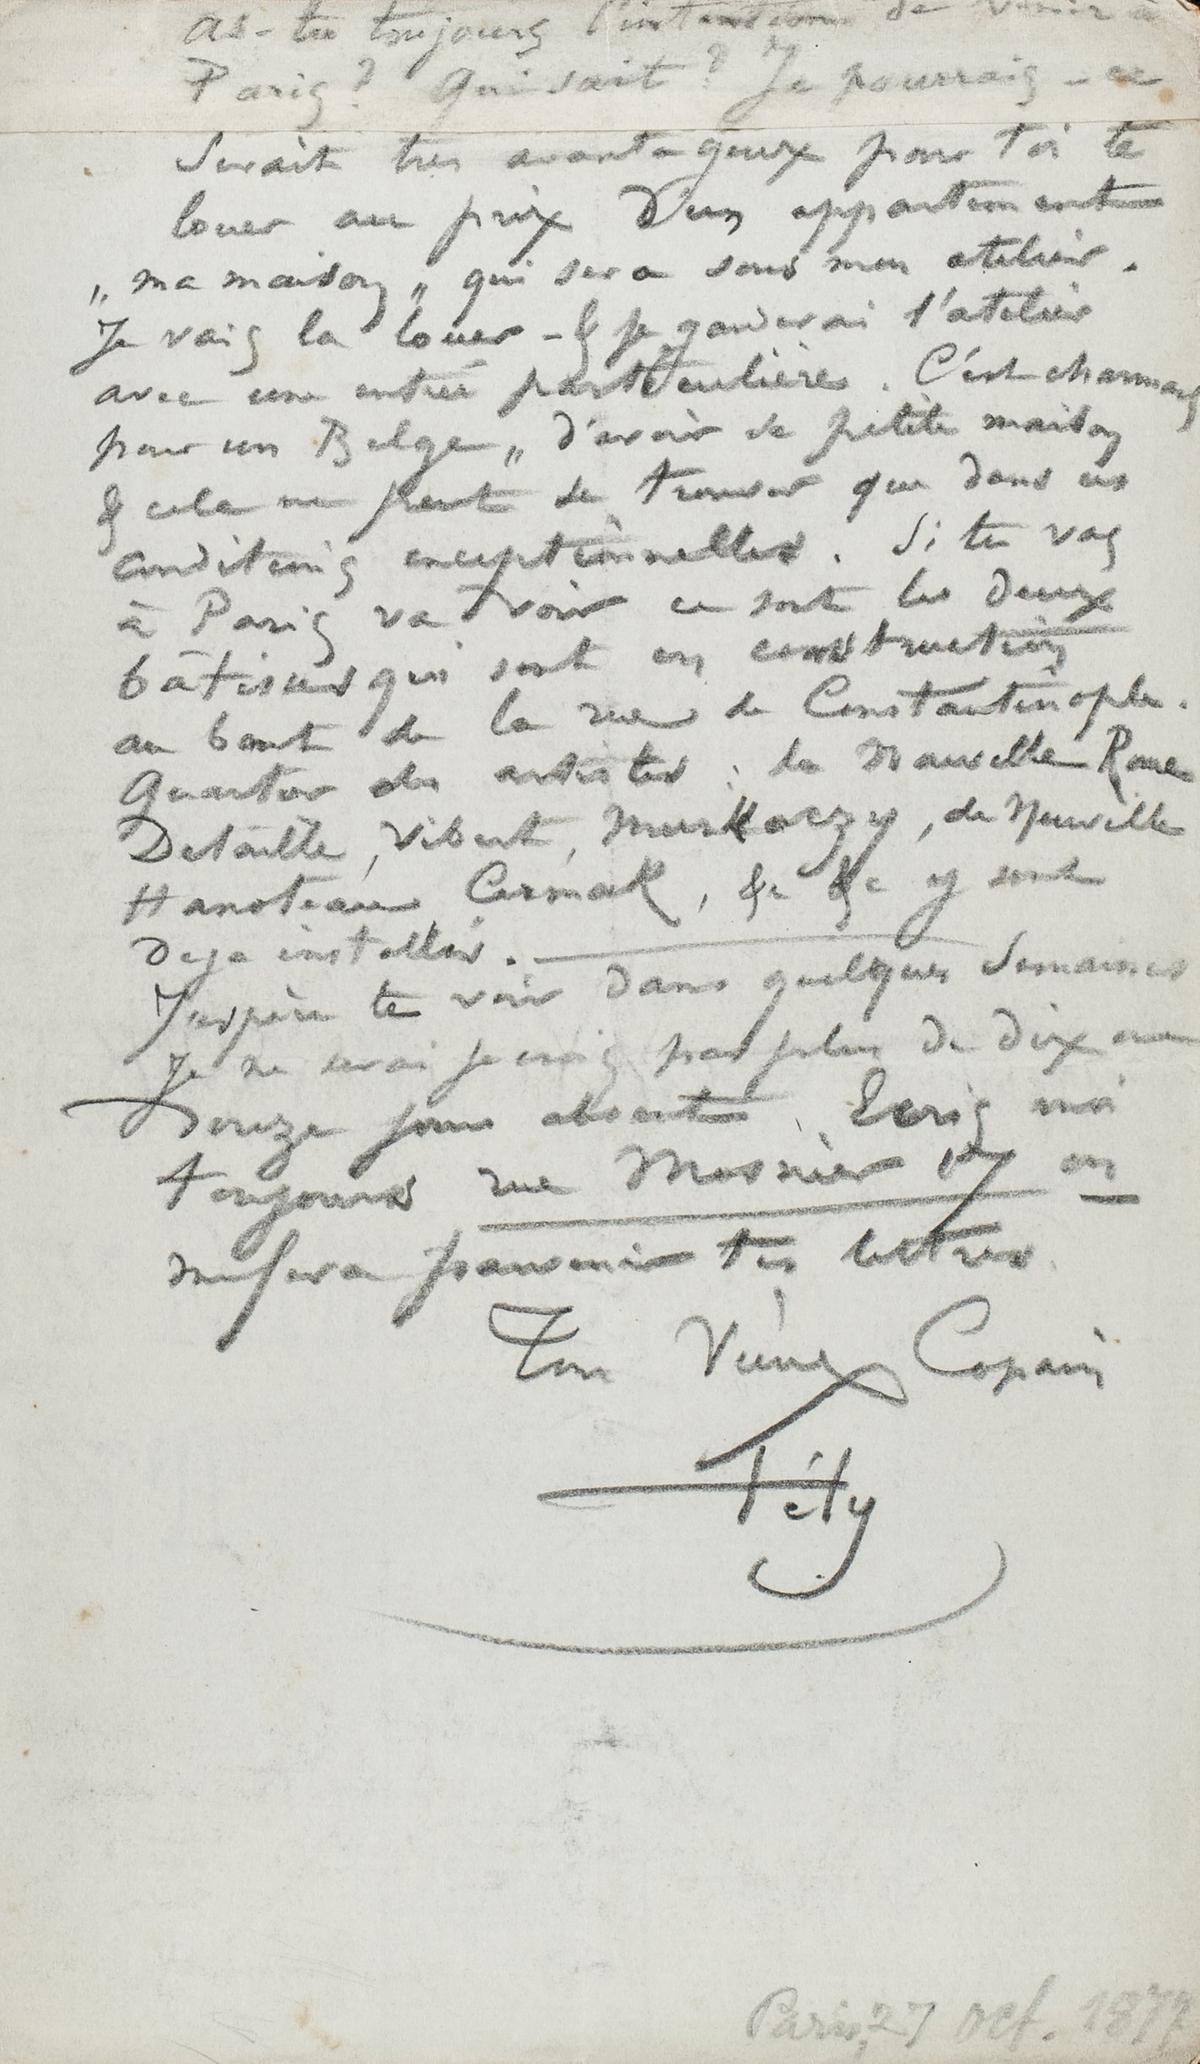 As-tu toujours l'intention de venir à
Paris? Qui sait? Je pourrais - ce
serait tres avantageux pour toi te
louer au prix d'un appartement
„ma maison„ qui sera sous mon atelier.
Je vais la louer - & je garderai l'atelier
avec une entrée particulière. C'est charmant
pour un Belge„ d'avoir sa petite maison
& cela ne peut se trouver que dans ces
conditions exceptionnelles. Si tu vas
à Paris va voir ce sont les deux
bâtisses qui sont en construction
au bout de la rue de Constantinople.
Quartier des artistes; la Nouvelle Rome
Detaille, Vibert, Munkaczy, de Neuville
Hanoteau Cermak, &c &c y sont
deja installés.
J'espère te voir dans quelques semaines
Je ne serai je crois pas plus de dix ou
douze jours absent. Ecris moi
toujours rue Mosnier 17 on
me fera parvenir tes lettres.
Ton Vieux Copain
Fély
Paris, 27 oct. 1877